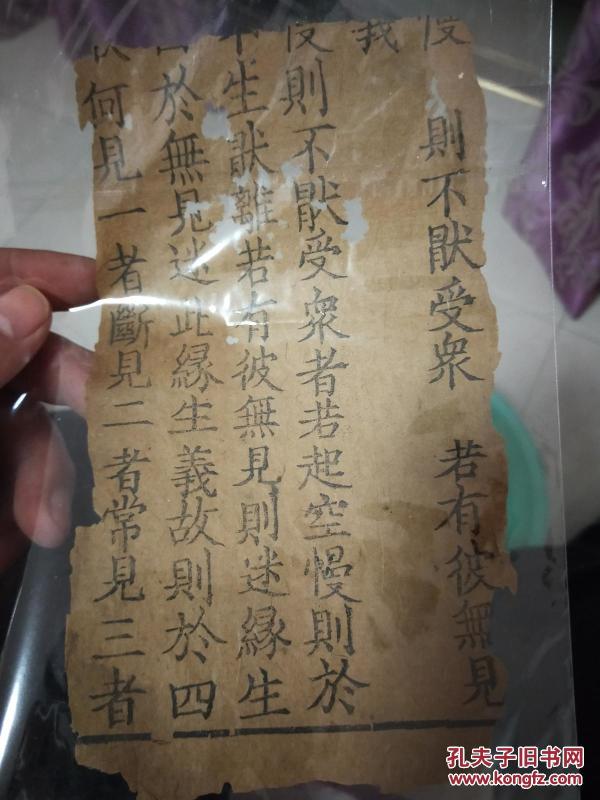 慢則不猒受衆 若有彼無見
我
慢則不猒受衆者若起空慢則於
不生猒離若有彼無見則迷緣生
於無見迷此緣生義故則於四
何見一者斷見二者常見三者
孔夫子旧书网
www.kongfz.com